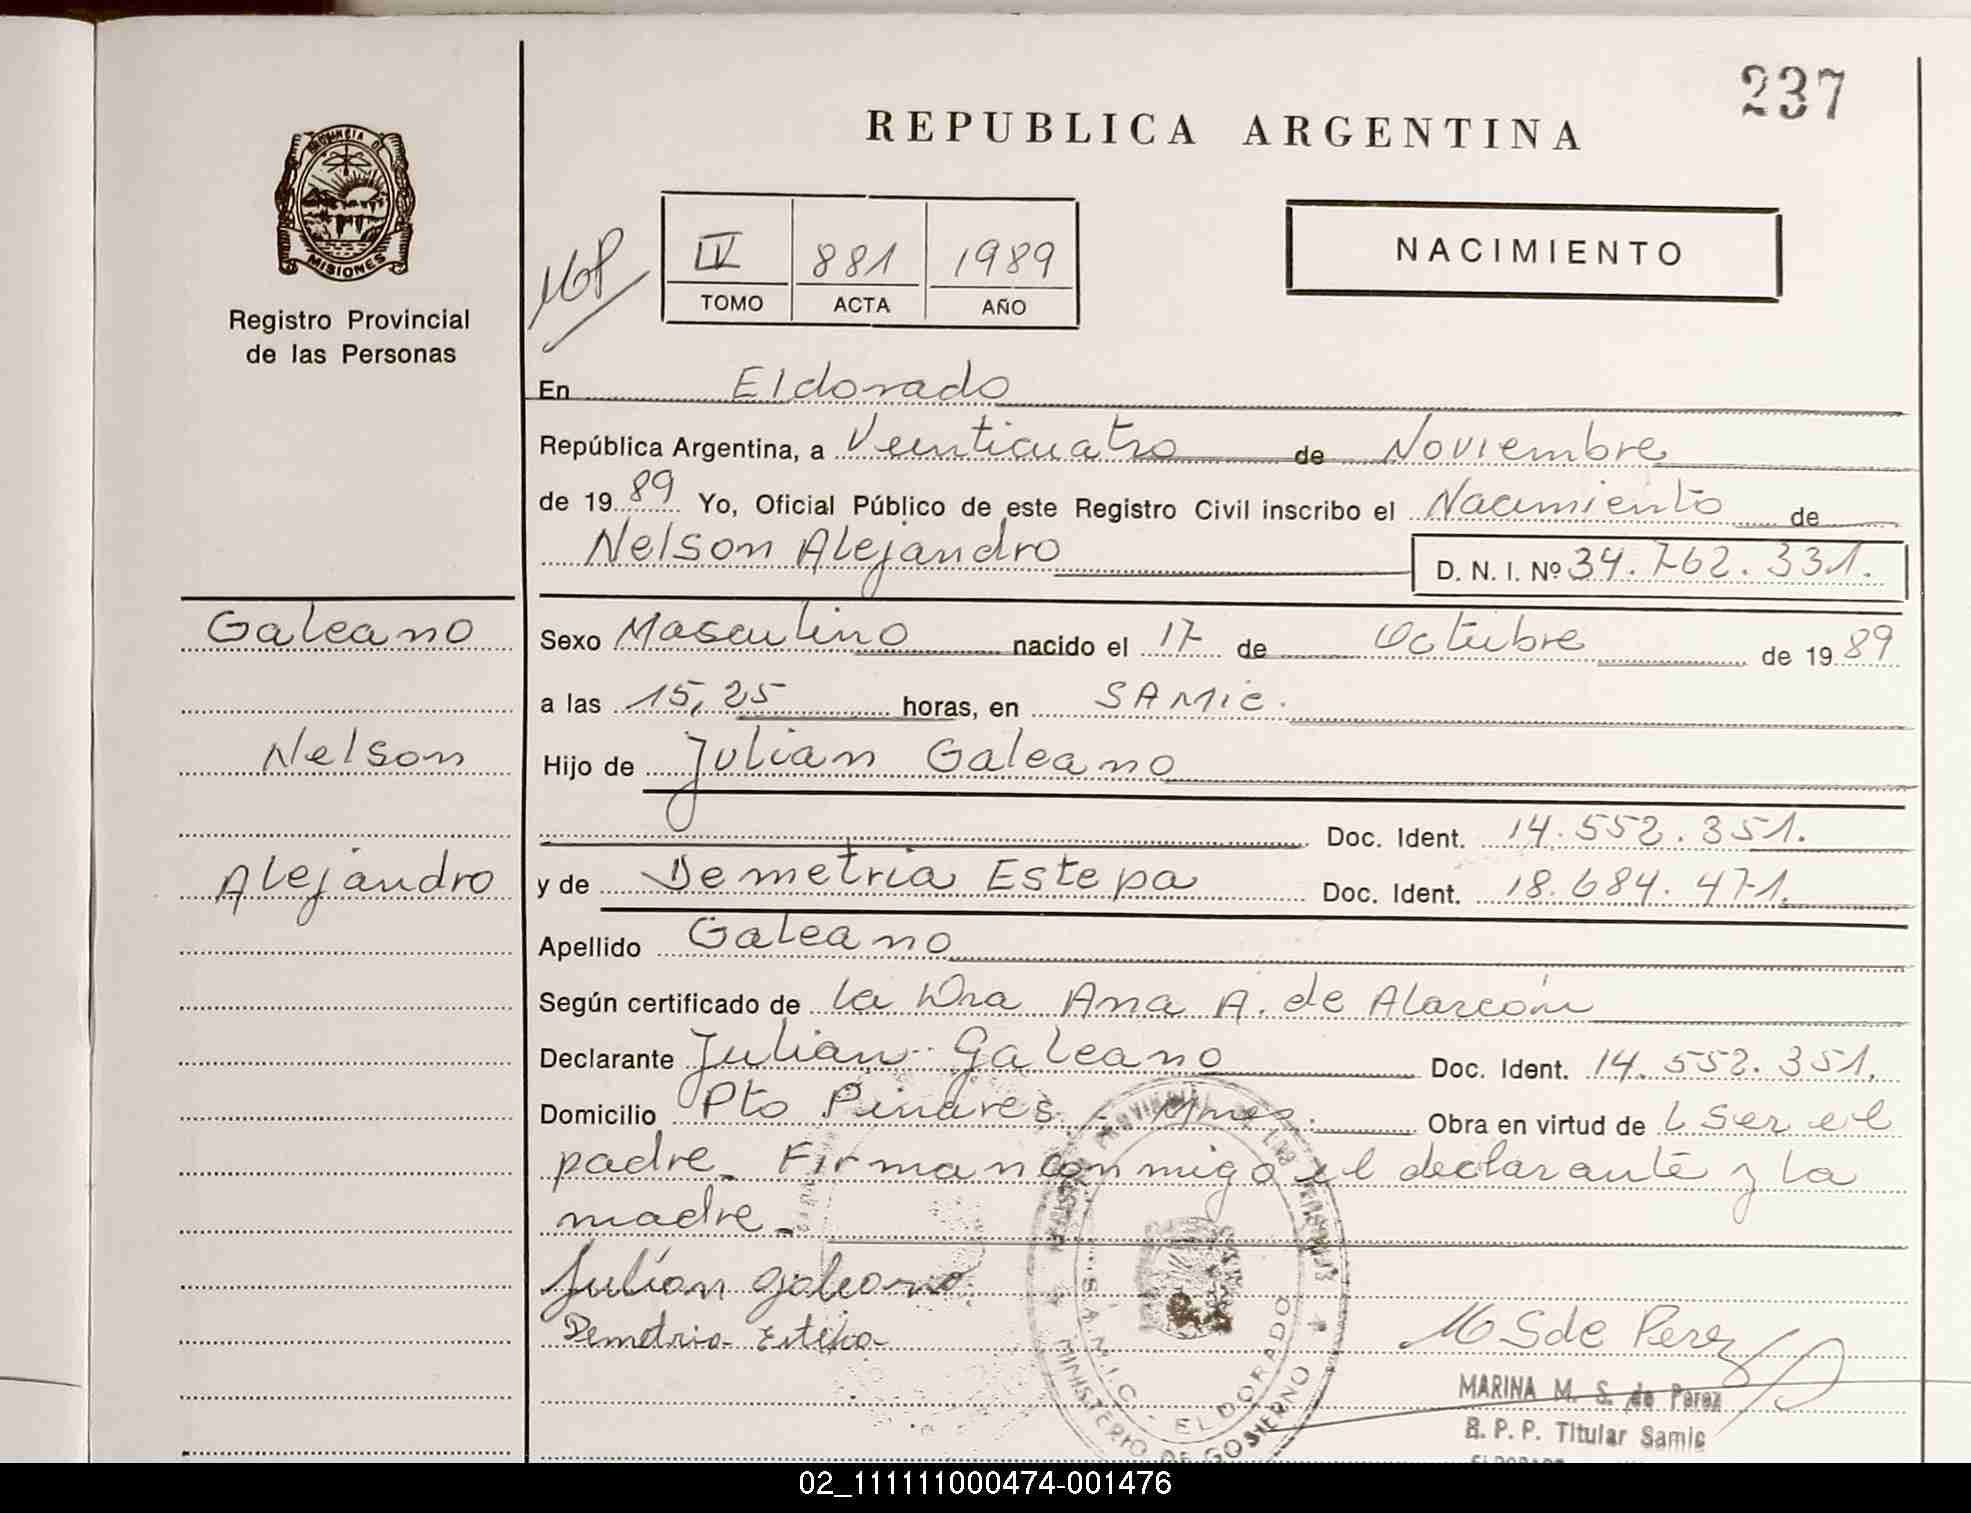 237
REPUBLICA ARGENTINA
PROVINCIA DE
MISIONES
Registro Provincial
de las Personas
IV 881 1989
TOMO ACTA AÑO
NACIMIENTO
En Eldorado
República Argentina, a Veinticuatro de Noviembre
de 1989 Yo, Oficial Público de este Registro Civil inscribo el Nacimiento de
Nelson Alejandro D. N. I. Nº 34.762.331.
Galeano
Nelson
Alejandro
Sexo Masculino nacido el 17 de Octubre de 1989
a las 15,25 horas, en SAMIC.
Hijo de Julian Galeano
Doc. Ident. 14.552.351.
y de Demetria Estepa Doc. Ident. 18.684.471.
Apellido Galeano
Según certificado de la Dra Ana A. de Alarcón
Declarante Julian Galeano Doc. Ident. 14.552.351.
Domicilio Pto Pinares - Mnes. Obra en virtud de ser el
padre_ Firman conmigo el declarante y la
madre_
Julian galeano
Demetria Estepa
S.A.M.I.C. - ELDORADO
MINISTERIO DE GOBIERNO
M S de Perez
MARINA M. S. de Perez
B. P. P. Titular Samic
ELDORADO
02_111111000474-001476